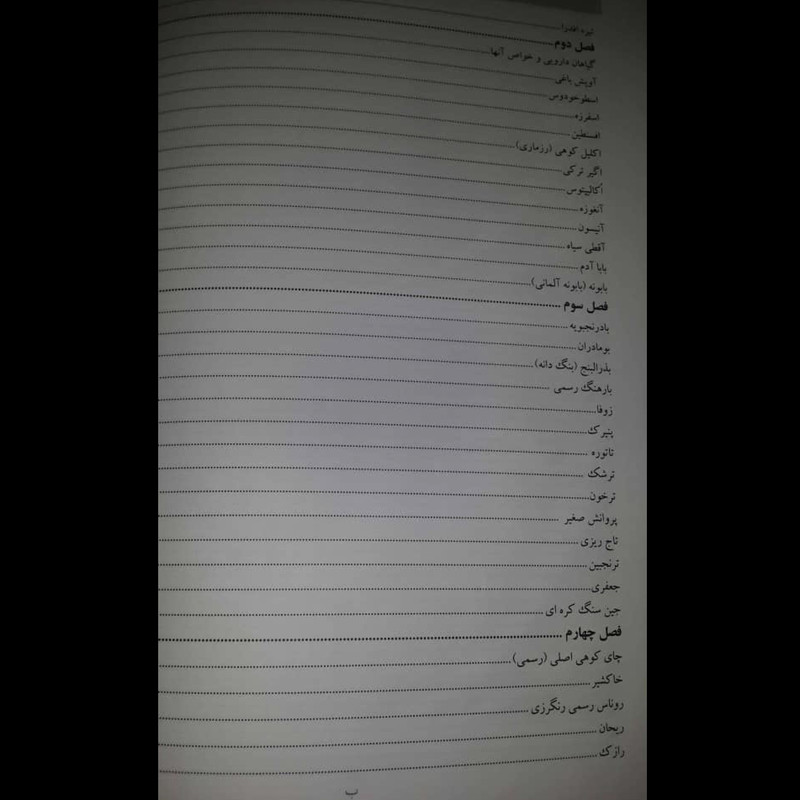 تیره افدرا
فصل دوم
گیاهان دارویی و خواص آنها
آویشن باغی
اسطوخودوس
اسفرزه
افسنطین
اکلیل کوهی (رزماری)
اگیر ترکی
اکالیپتوس
آنغوزه
آنیسون
آقطی سیاه
بابا آدم
بابونه (بابونه آلمانی)
فصل سوم
بادرنجبویه
بومادران
بذرالبنج (بنگ دانه)
بارهنگ رسمی
زوفا
پنیرک
تاتوره
ترشک
ترخون
پروانش صغیر
تاج ریزی
ترنجبین
جعفری
جین سنگ کره ای
فصل چهارم
چای کوهی اصلی (رسمی)
خاکشیر
روناس رسمی رنگرزی
ریحان
رازک
ب